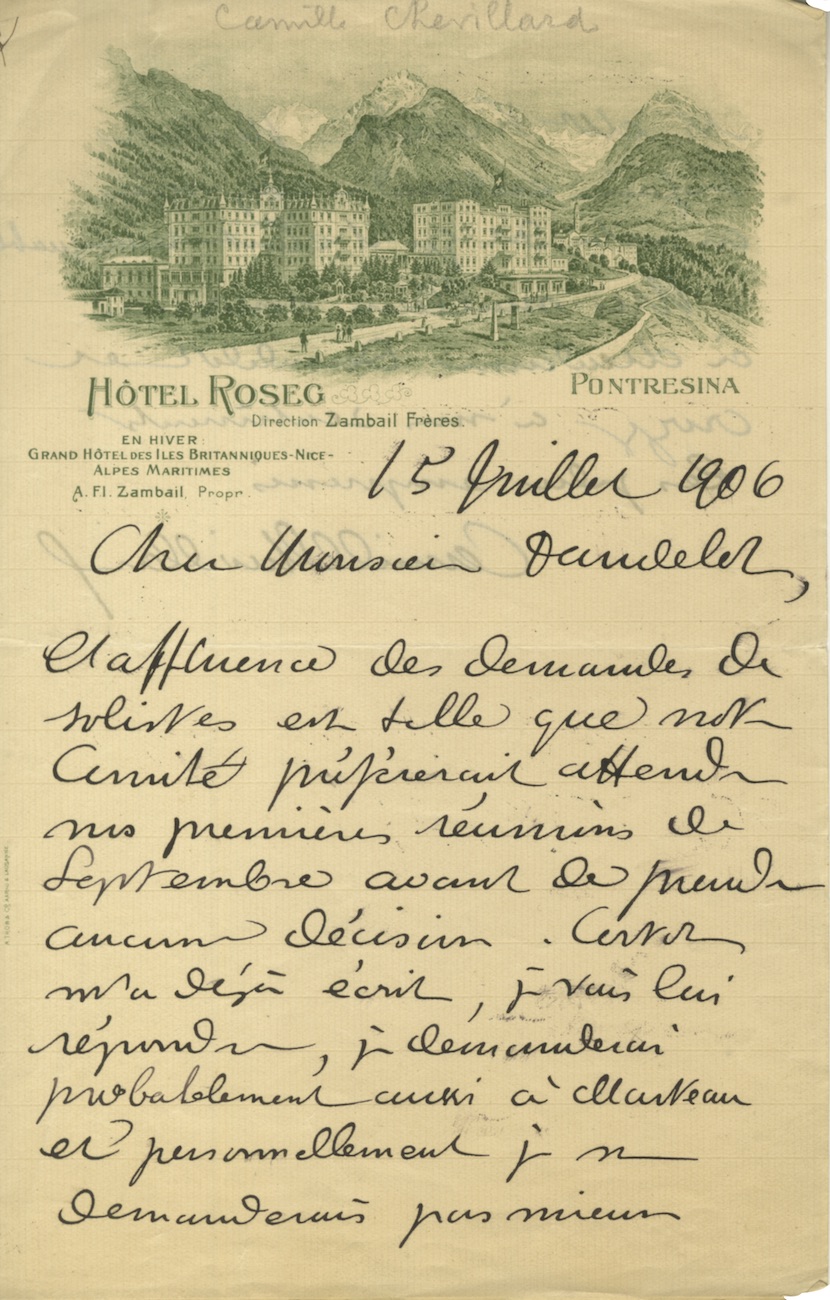 Camille Chevillard
HÔTEL ROSEG
PONTRESINA
Direction Zambail Frères.
EN HIVER:
GRAND HÔTEL DES ILES BRITANNIQUES-NICE-
ALPES MARITIMES
A. Fl. Zambail, Propr.
15 Juillet 1906
Cher Monsieur Dandelot,
L'affluence des demandes de
solistes est telle que notre
Comité préfèrerait attendre
nos premières réunions de
Septembre avant de prendre
aucune décision. Cortot
m'a déjà écrit, je vais lui
répondre, je demanderai
probablement aussi à Marteau
et personnellement je ne
demanderais pas mieux